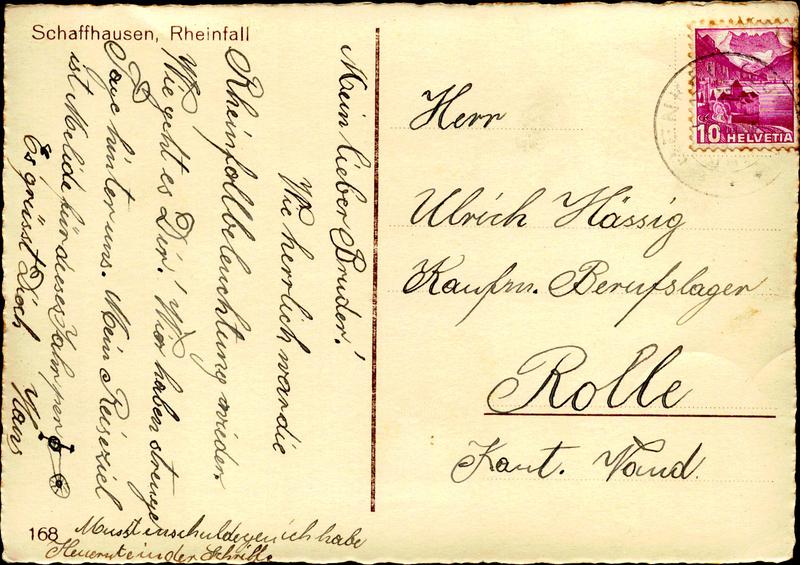 Schaffhausen, Rheinfall
Mein lieber Bruder!
Wie herrlich war die
Rheinfallbeleuchtung wieder.
Wie geht es Dir! Wir haben strenge
Tage hinter uns. Mein Reiseziel
ist Melide für dieses Jahr
Es grüsst Dich Hans
168 Musst entschuldigen ich habe
in der Schrift.
Herr
Ulrich Hässig
Kaufm. Berufslager
Rolle
Kant. Vaud.
10 HELVETIA